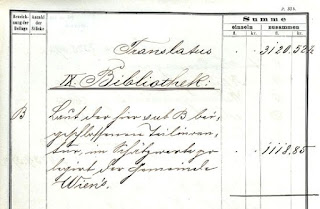 p. 358.
Bezeich-
nung der
Beilage
Anzahl
der
Stücke
Summe
einzeln zusammen
fl. kr. fl. kr.
Translatus . . 3120.52½
IX. Bibliothek:
B Laut der hier sub B bei-
geschlossenen Teilinven-
tur, im Schätzwerte . . 1118.85
legirt der Gemeinde
Wien's.